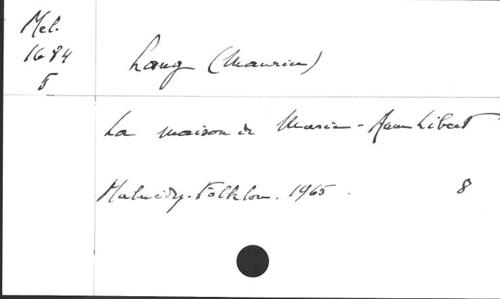 Mel.
1684
5
Lang (Maurice)
La maison de Marie-Anne Libert
Malmedy-Folklore. 1965. 8